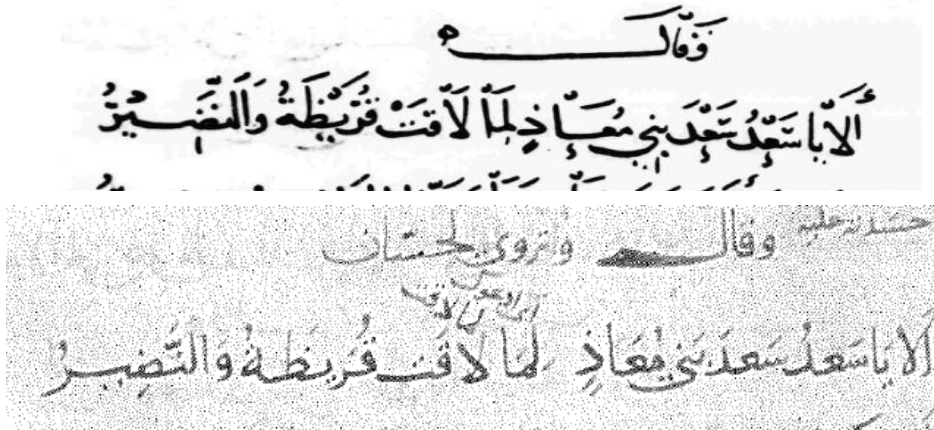 وَقَالَ
أَلَا يَا سَعْدُ سَعْدَ بَنِي مُعَاذٍ لِمَا لَاقَتْ قُرَيْظَةُ وَالنَّضِيرُ
وقال ويروى لحسان
أَلَا يَا سَعدُ سَعدَ بَني مُعَاذٍ لِمَا لَاقَت قُرَيظَةُ وَالنَّضِيرُ